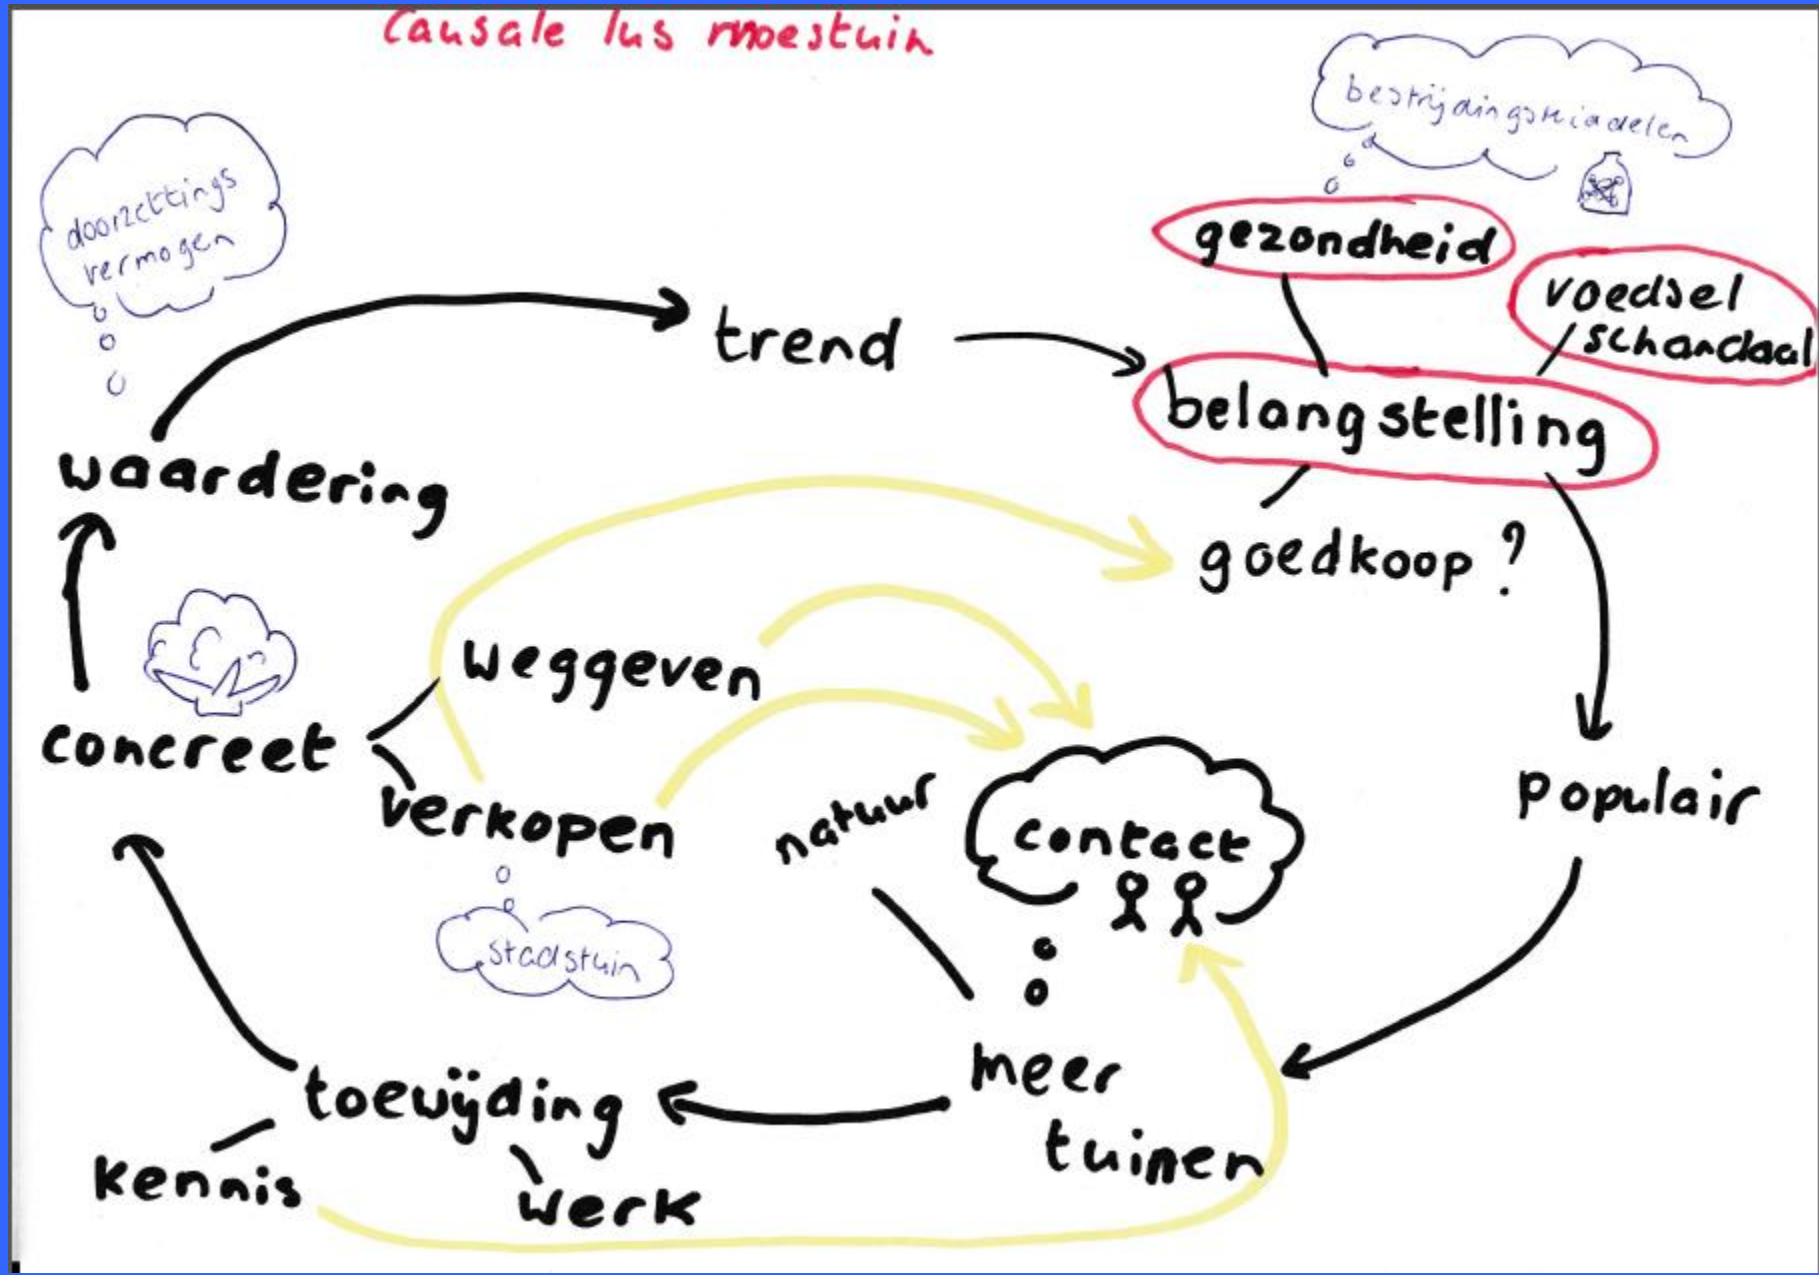 Causale lus moestuin
bestrijdingsmiddelen
doorzettings
vermogen
gezondheid
voedsel
schandaal
trend
belangstelling
waardering
goedkoop?
weggeven
concreet
verkopen
natuur
contact
populair
stadstuin
meer
tuinen
toewijding
kennis
werk